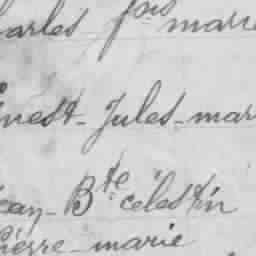 arles fois marie
rnest-Jules-mar
ean-Bte celestin
ierre-marie